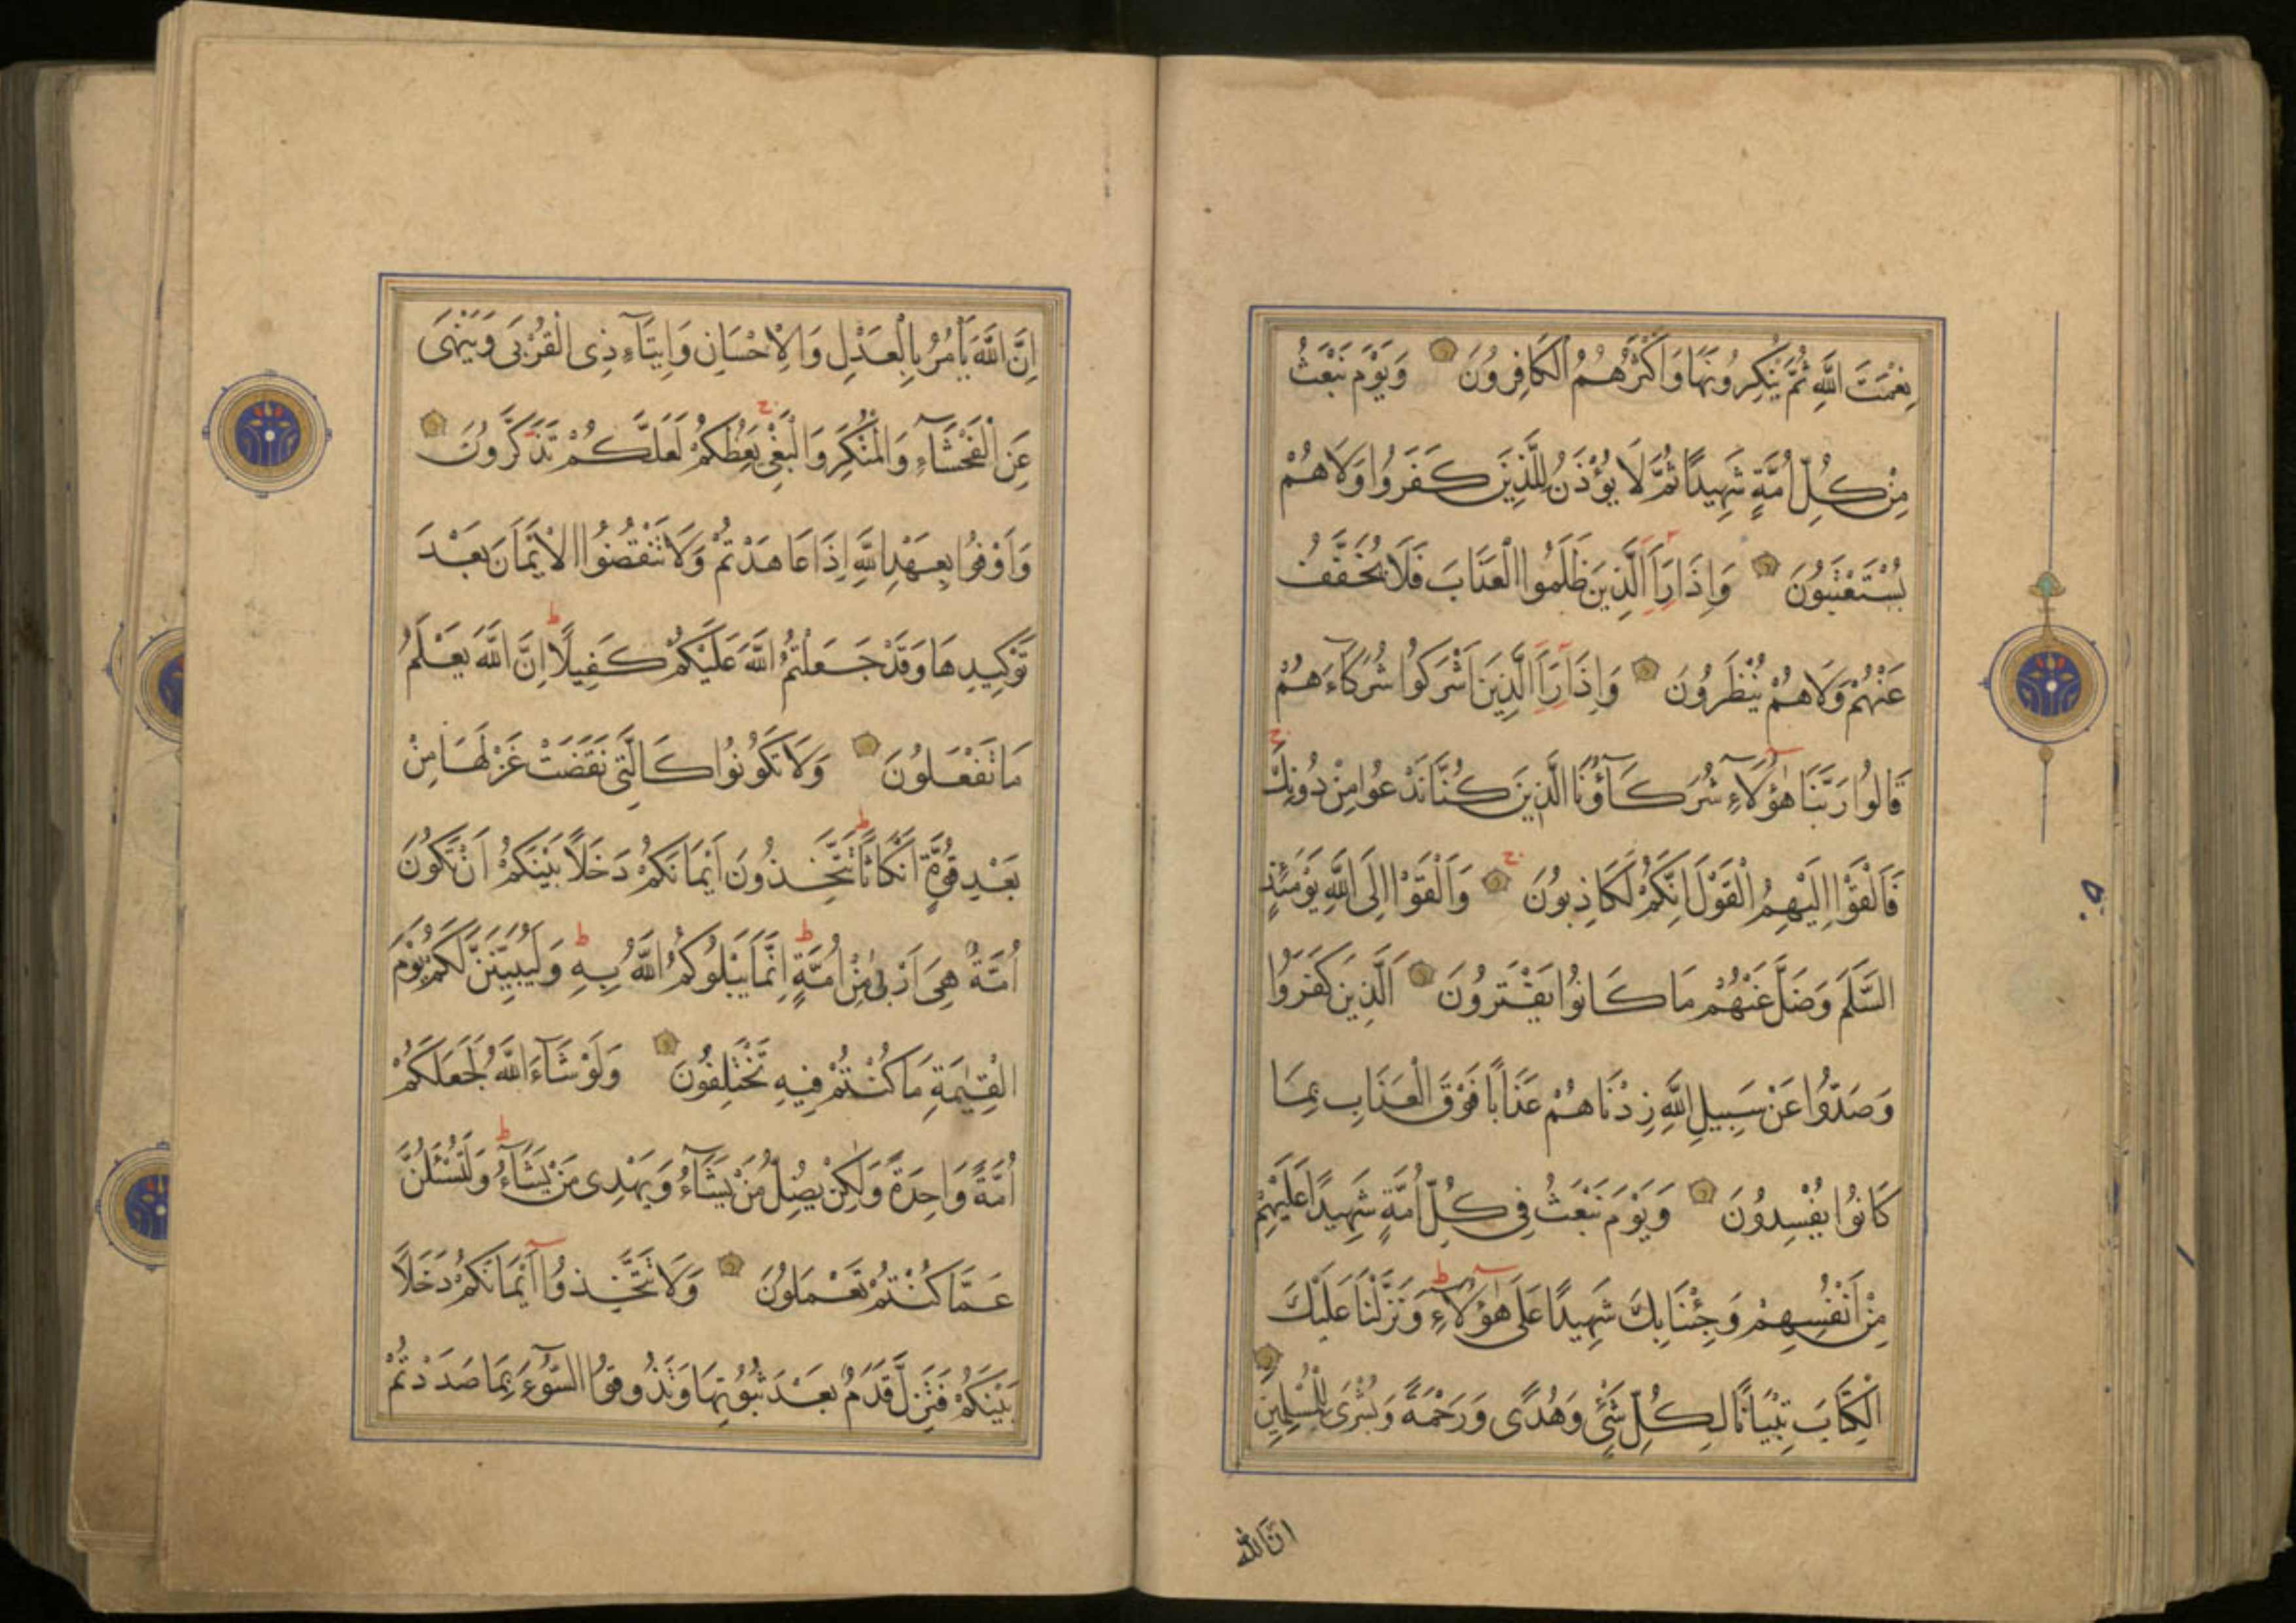 نِعْمَتَ اللَّهِ ثُمَّ يُنْكِرُونَهَا وَاَكْثَرُهُمُ الْكَافِرُونَ وَيَوْمَ نَبْعَثُ
مِنْ كُلِّ اُمَّةٍ شَهِيدًا ثُمَّ لَا يُؤْذَنُ لِلَّذِينَ كَفَرُوا وَلَا هُمْ
يُسْتَعْتَبُونَ وَاِذَا رَاَ الَّذِينَ ظَلَمُوا الْعَذَابَ فَلَا يُخَفَّفُ
عَنْهُمْ وَلَا هُمْ يُنْظَرُونَ وَاِذَا رَاَ الَّذِينَ اَشْرَكُوا شُرَكَآءَهُمْ
قَالُوا رَبَّنَا هٰٓؤُلَآءِ شُرَكَآؤُنَا الَّذِينَ كُنَّا نَدْعُوا مِنْ دُونِكَ ج
فَاَلْقَوْا اِلَيْهِمُ الْقَوْلَ اِنَّكُمْ لَكَاذِبُونَ ج وَاَلْقَوْا اِلَى اللَّهِ يَوْمَئِذٍ
السَّلَمَ وَضَلَّ عَنْهُمْ مَا كَانُوا يَفْتَرُونَ اَلَّذِينَ كَفَرُوا
وَصَدُّوا عَنْ سَبِيلِ اللَّهِ زِدْنَاهُمْ عَذَابًا فَوْقَ الْعَذَابِ بِمَا
كَانُوا يُفْسِدُونَ وَيَوْمَ نَبْعَثُ فِى كُلِّ اُمَّةٍ شَهِيدًا عَلَيْهِمْ
مِنْ اَنْفُسِهِمْ وَجِئْنَا بِكَ شَهِيدًا عَلَى هٰٓؤُلَآءِ ط وَنَزَّلْنَا عَلَيْكَ
الْكِتَابَ تِبْيَانًا لِكُلِّ شَىْءٍ وَهُدًى وَرَحْمَةً وَبُشْرَى لِلْمُسْلِمِينَ
انّ الله
اِنَّ اللَّهَ يَاْمُرُ بِالْعَدْلِ وَالْاِحْسَانِ وَاِيتَآءِ ذِى الْقُرْبَى وَيَنْهَى
عَنِ الْفَحْشَآءِ وَالْمُنْكَرِ وَالْبَغْىِ ج يَعِظُكُمْ لَعَلَّكُمْ تَذَكَّرُونَ
وَاَوْفُوا بِعَهْدِ اللَّهِ اِذَا عَاهَدْتُمْ وَلَا تَنْقُضُوا الْاَيْمَانَ بَعْدَ
تَوْكِيدِهَا وَقَدْ جَعَلْتُمُ اللَّهَ عَلَيْكُمْ كَفِيلًا ط اِنَّ اللَّهَ يَعْلَمُ
مَا تَفْعَلُونَ وَلَا تَكُونُوا كَالَّتِى نَقَضَتْ غَزْلَهَا مِنْ
بَعْدِ قُوَّةٍ اَنْكَاثًا ط تَتَّخِذُونَ اَيْمَانَكُمْ دَخَلًا بَيْنَكُمْ اَنْ تَكُونَ
اُمَّةٌ هِىَ اَرْبٰى مِنْ اُمَّةٍ ط اِنَّمَا يَبْلُوكُمُ اللَّهُ بِهِ ط وَلَيُبَيِّنَنَّ لَكُمْ يَوْمَ
الْقِيٰمَةِ مَا كُنْتُمْ فِيهِ تَخْتَلِفُونَ وَلَوْ شَآءَ اللَّهُ لَجَعَلَكُمْ
اُمَّةً وَاحِدَةً وَلٰكِنْ يُضِلُّ مَنْ يَشَآءُ وَيَهْدِى مَنْ يَشَآءُ ط وَلَتُسْئَلُنَّ
عَمَّا كُنْتُمْ تَعْمَلُونَ وَلَا تَتَّخِذُوٓا اَيْمَانَكُمْ دَخَلًا
بَيْنَكُمْ فَتَزِلَّ قَدَمٌ بَعْدَ ثُبُوتِهَا وَتَذُوقُوا السُّوٓءَ بِمَا صَدَدْتُمْ